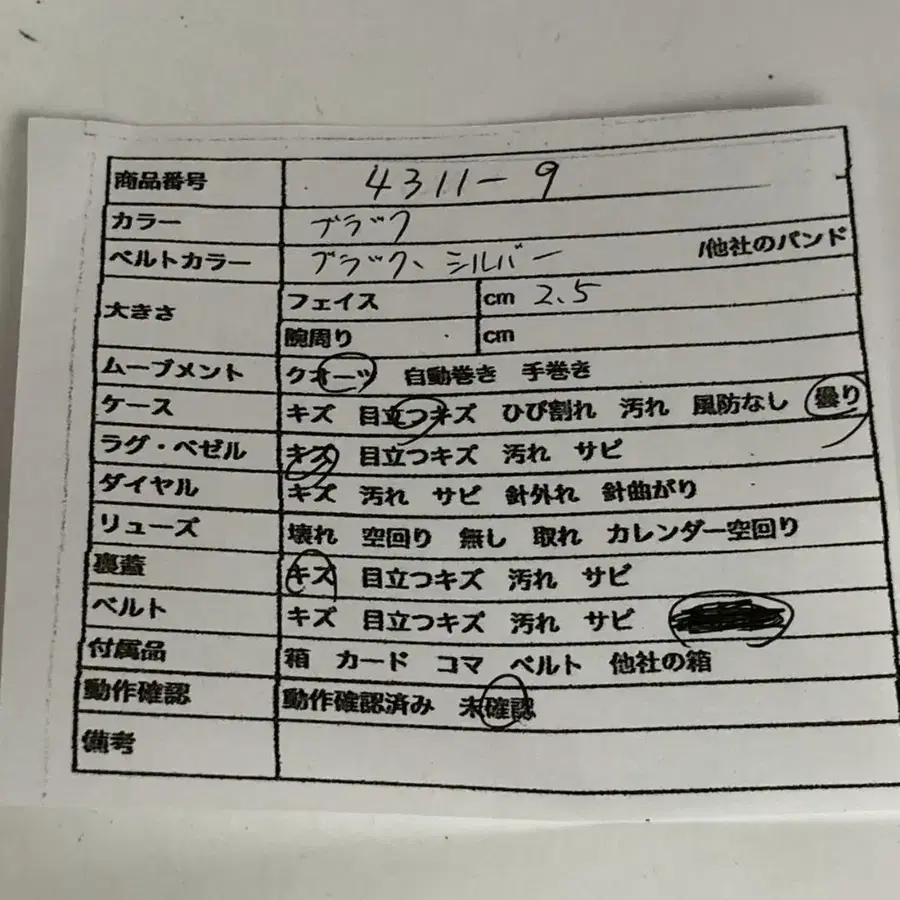 商品番号 4311-9
カラー ブラック
ベルトカラー ブラック、シルバー /他社のバンド
大きさ フェイス cm 2.5
腕周り cm
ムーブメント クオーツ 自動巻き 手巻き
ケース キズ 目立つキズ ひび割れ 汚れ 風防なし 曇り
ラグ・ベゼル キズ 目立つキズ 汚れ サビ
ダイヤル キズ 汚れ サビ 針外れ 針曲がり
リューズ 壊れ 空回り 無し 取れ カレンダー空回り
裏蓋 キズ 目立つキズ 汚れ サビ
ベルト キズ 目立つキズ 汚れ サビ
付属品 箱 カード コマ ベルト 他社の箱
動作確認 動作確認済み 未確認
備考